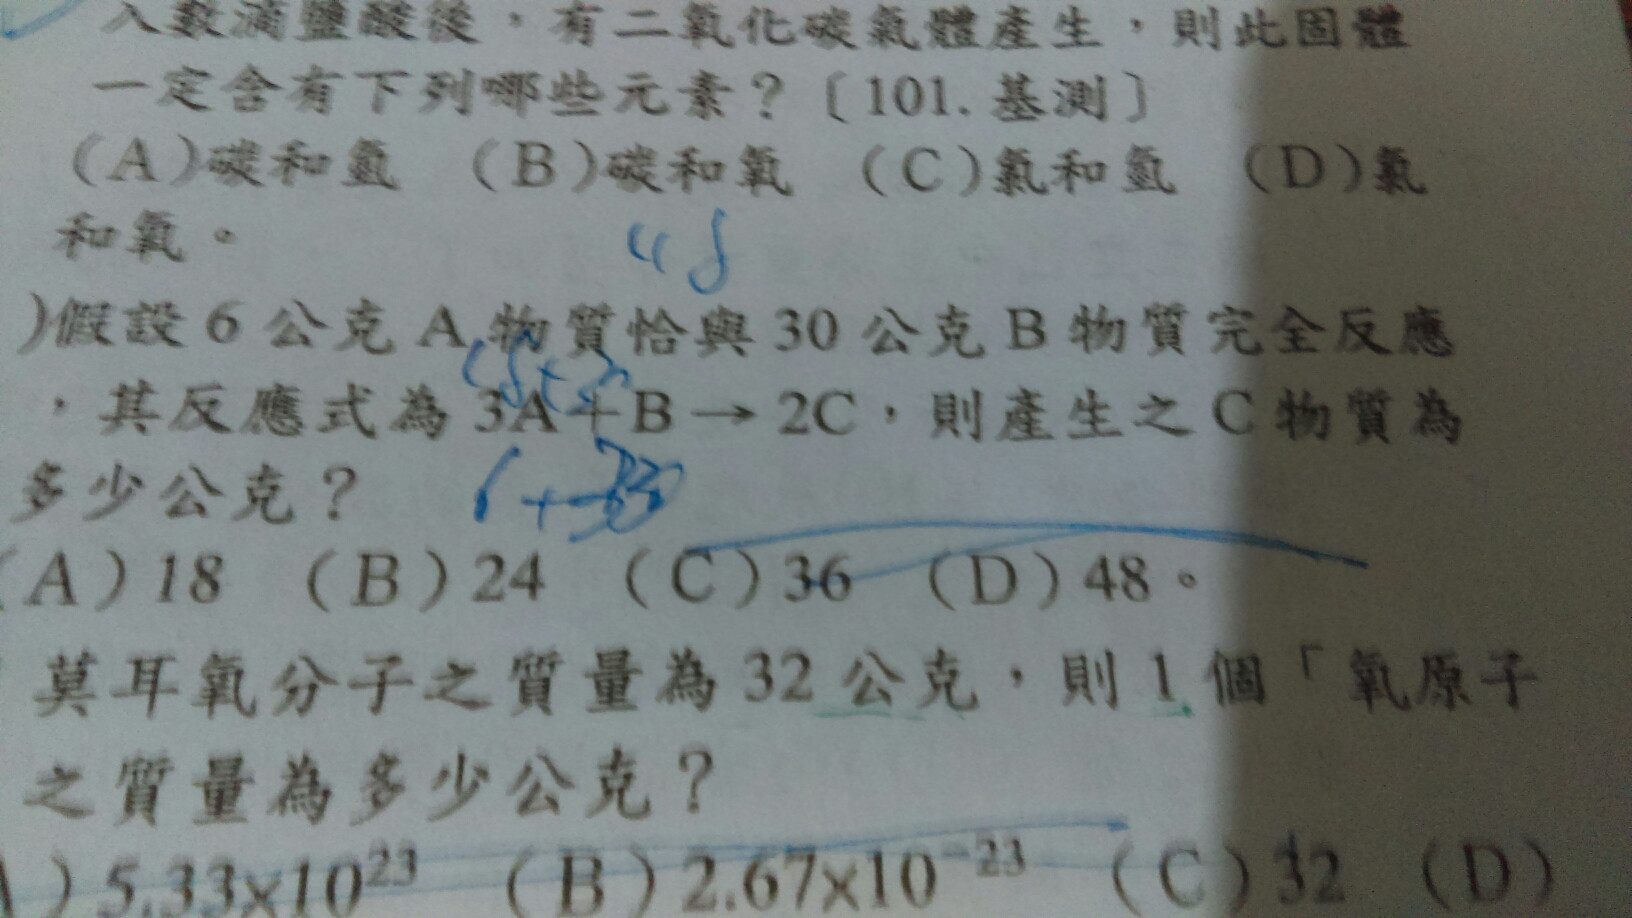 入數滴鹽酸後，有二氧化碳氣體產生，則此固體
一定含有下列哪些元素？〔101. 基測〕
(A)碳和氫 (B)碳和氧 (C)氯和氫 (D)氯
和氧。
)假設 6 公克 A 物質恰與 30 公克 B 物質完全反應
，其反應式為 3A＋B → 2C，則產生之 C 物質為
多少公克？
(A) 18 (B) 24 (C) 36 (D) 48。
莫耳氧分子之質量為 32 公克，則 1 個「氧原子
之質量為多少公克？
) 5.33×10²³ (B) 2.67×10⁻²³ (C) 32 (D)